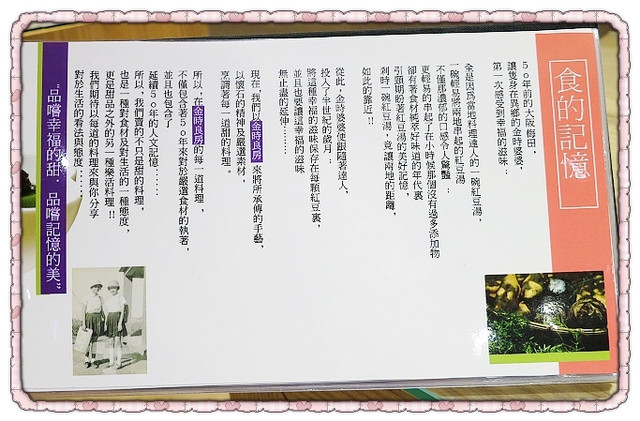 食的記憶
50年前的大阪梅田,
讓隻身在異鄉的金時婆婆,
第一次感受到幸福的滋味;
全是因為當地料理達人的一碗紅豆湯,
一碗輕易將兩地串起的紅豆湯;
不僅那濃郁的口感令人驚豔;
更輕易的串起了在小時候那個沒有過多添加物
卻有著食材純萃好味道的年代裏
引頸期盼著紅豆湯的美好記憶,
剎時一碗紅豆湯,竟讓兩地的距離,
如此的靠近!!
從此,金時婆婆便跟隨著達人,
投入了半世紀的歲月;
將這種幸福的滋味保存在每顆紅豆裏,
並且也要讓這幸福的滋味
無止盡的延伸………
現在,我們以金時良房來將所承傳的手藝,
以懷石的精神及嚴選素材,
烹調著每一道甜的料理。
所以,在金時良房的每一道料理,
不僅包含著50年來對於嚴選食材的執著,
並且也包含了
延續50年的人文記憶……
所以,我們賣的不只是甜的料理,
也是一種對食材及對生活的一種態度,
更是甜品之外的另一種樂活料理!!
我們期待以每道的料理來與你分享
對於生活的看法與態度……
"品嚐幸福的甜, 品嚐記憶的美"